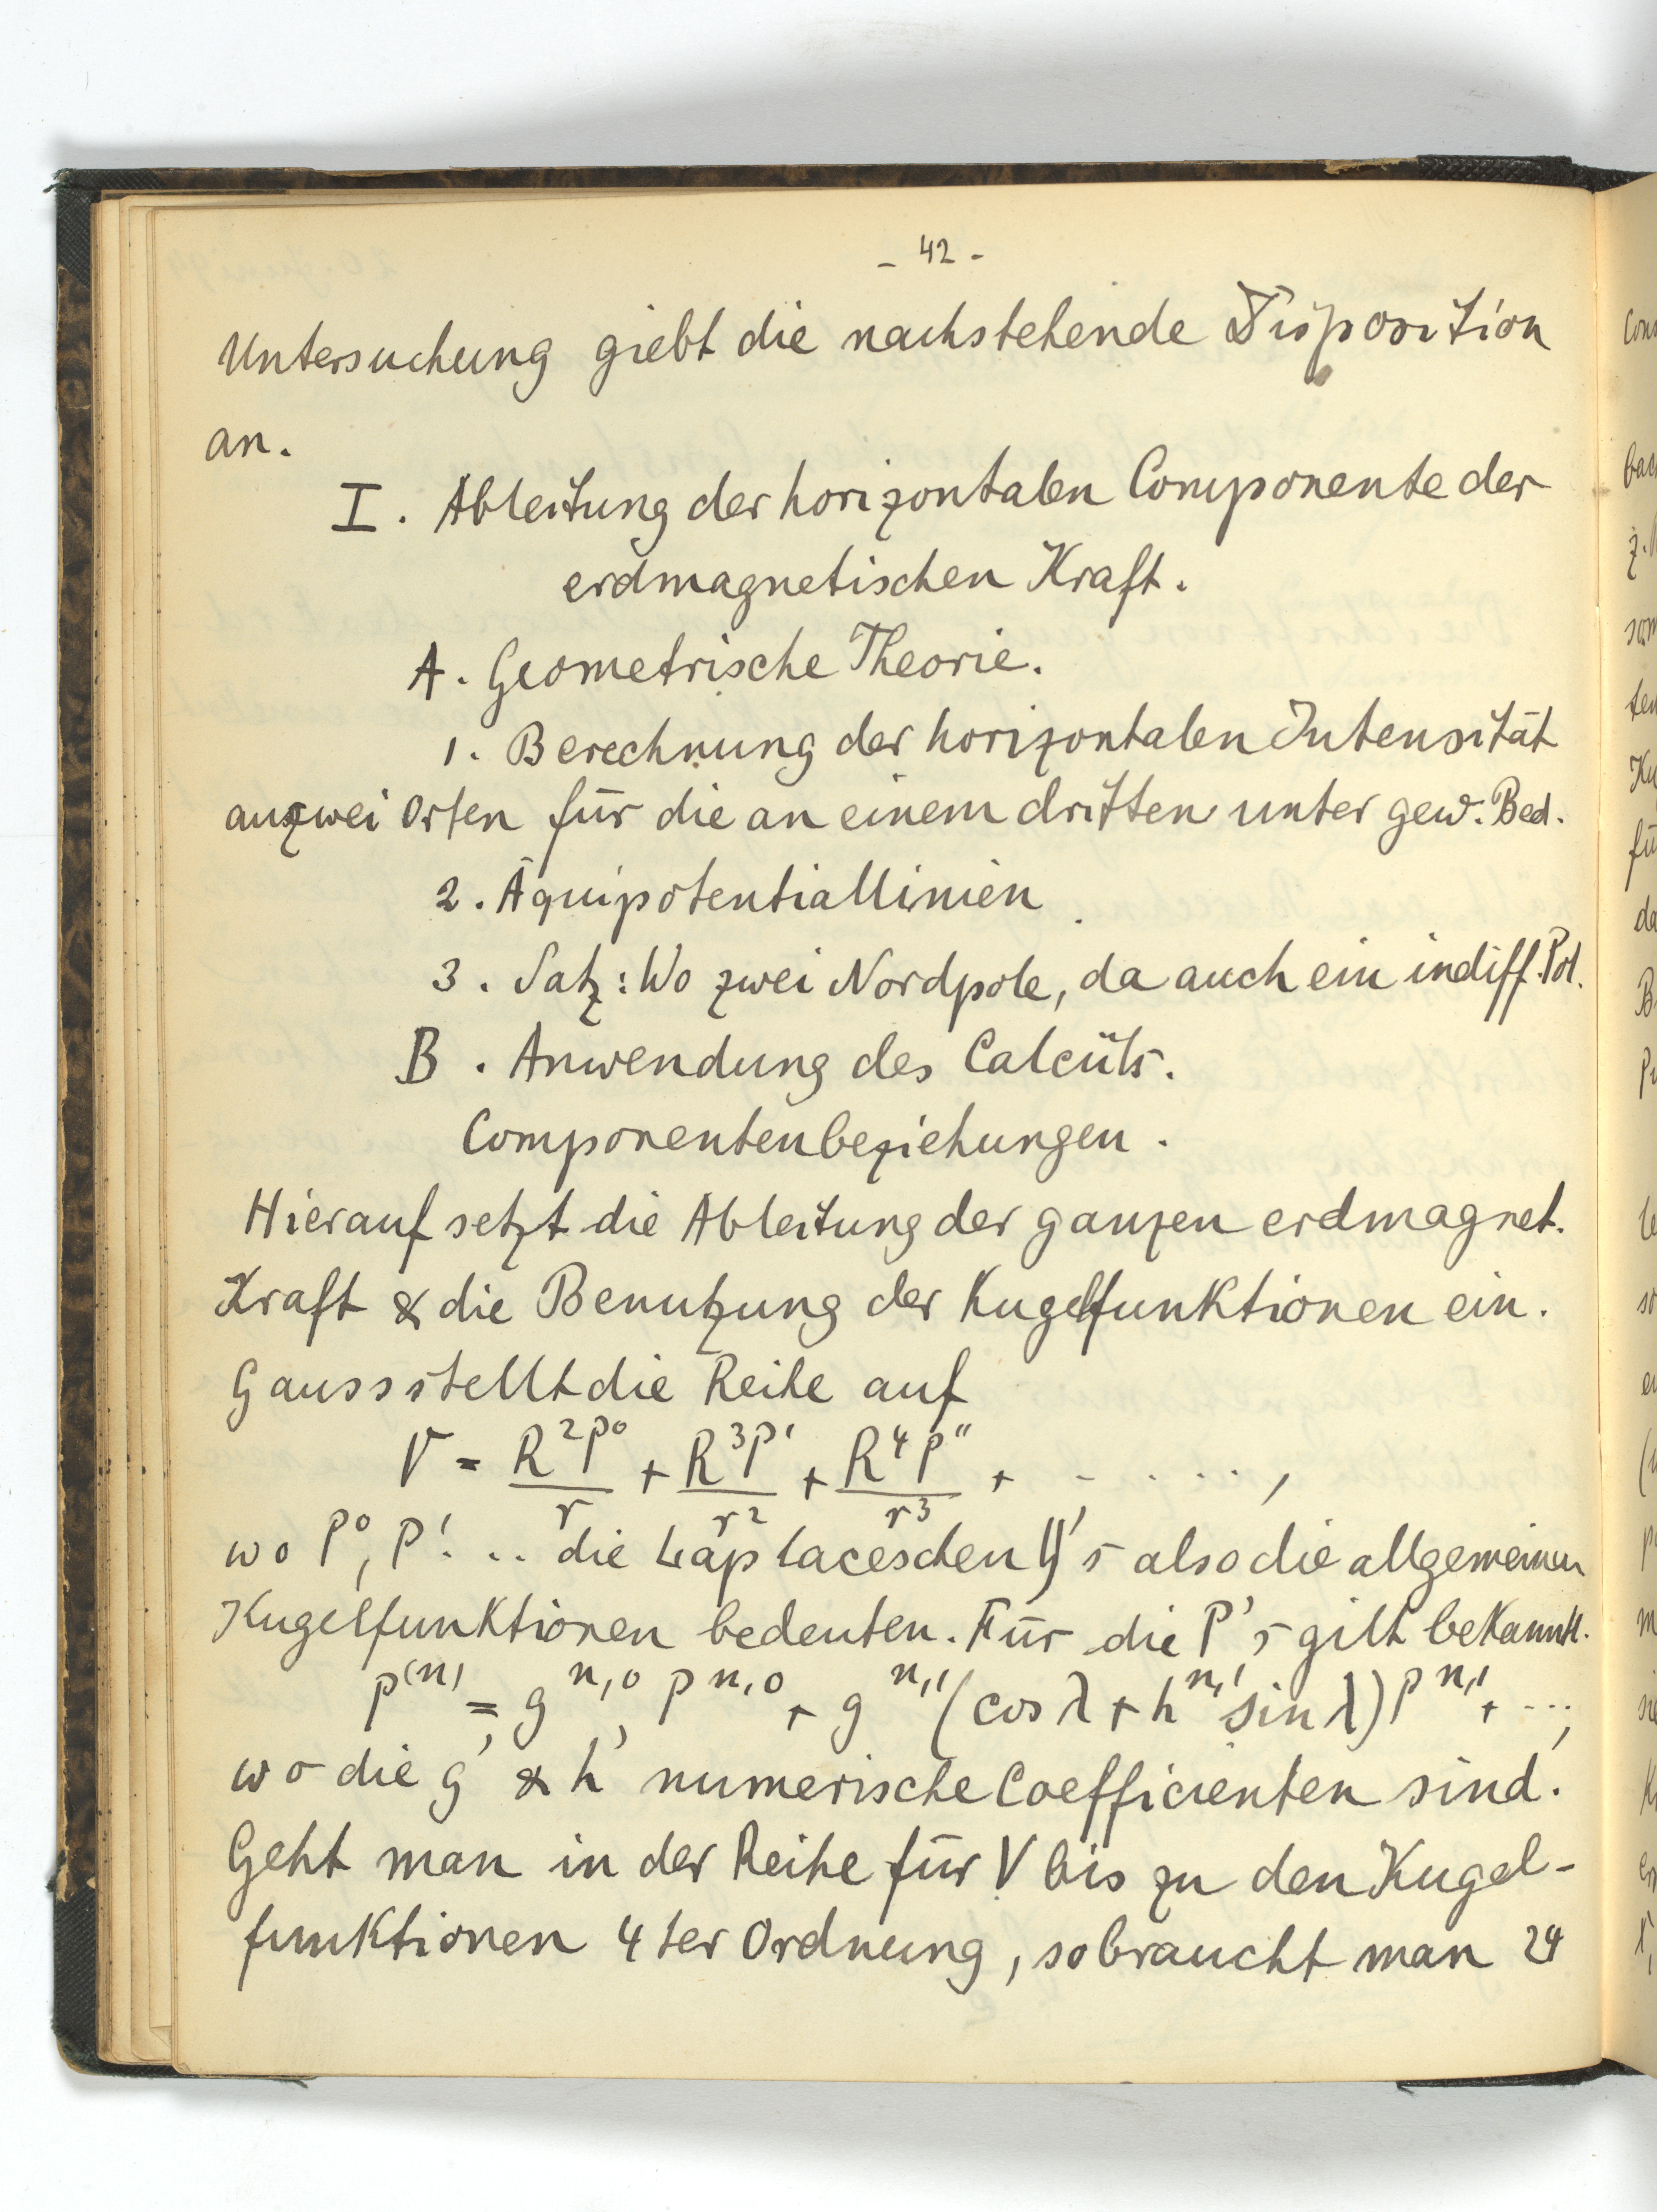 - 42 -
Untersuchung giebt die nachstehende Disposition
an.
I. Ableitung der horizontalen Componente der
erdmagnetischen Kraft.
A. Geometrische Theorie.
1. Berechnung der horizontalen Intensität
aus zwei Orten für die an einem dritten unter gew. Bed.
2. Äquipotentiallinien.
3. Satz: Wo zwei Nordpole, da auch ein indiff. Pol.
B. Anwendung des Calcüls.
Componentenbeziehungen.
Hierauf setzt die Ableitung der ganzen erdmagnet.
Kraft & die Benutzung der Kugelfunktionen ein.
Gauss stellt die Reihe auf
V = R²P⁰/r + R³P'/r² + R⁴P''/r³ + - . . . . ,
wo P⁰, P' . .. die Laplaceschen Y's also die allgemeinen
Kugelfunktionen bedeuten. Für die P's gilt bekanntl.
P⁽ⁿ⁾ = g^{n,0} P^{n,0} + g^{n,1} (cos λ + h^{n,1} sin λ) P^{n,1} + ...,
wo die g' & h' numerische Coefficienten sind.
Geht man in der Reihe für V bis zu den Kugel-
funktionen 4ter Ordnung, so braucht man 24